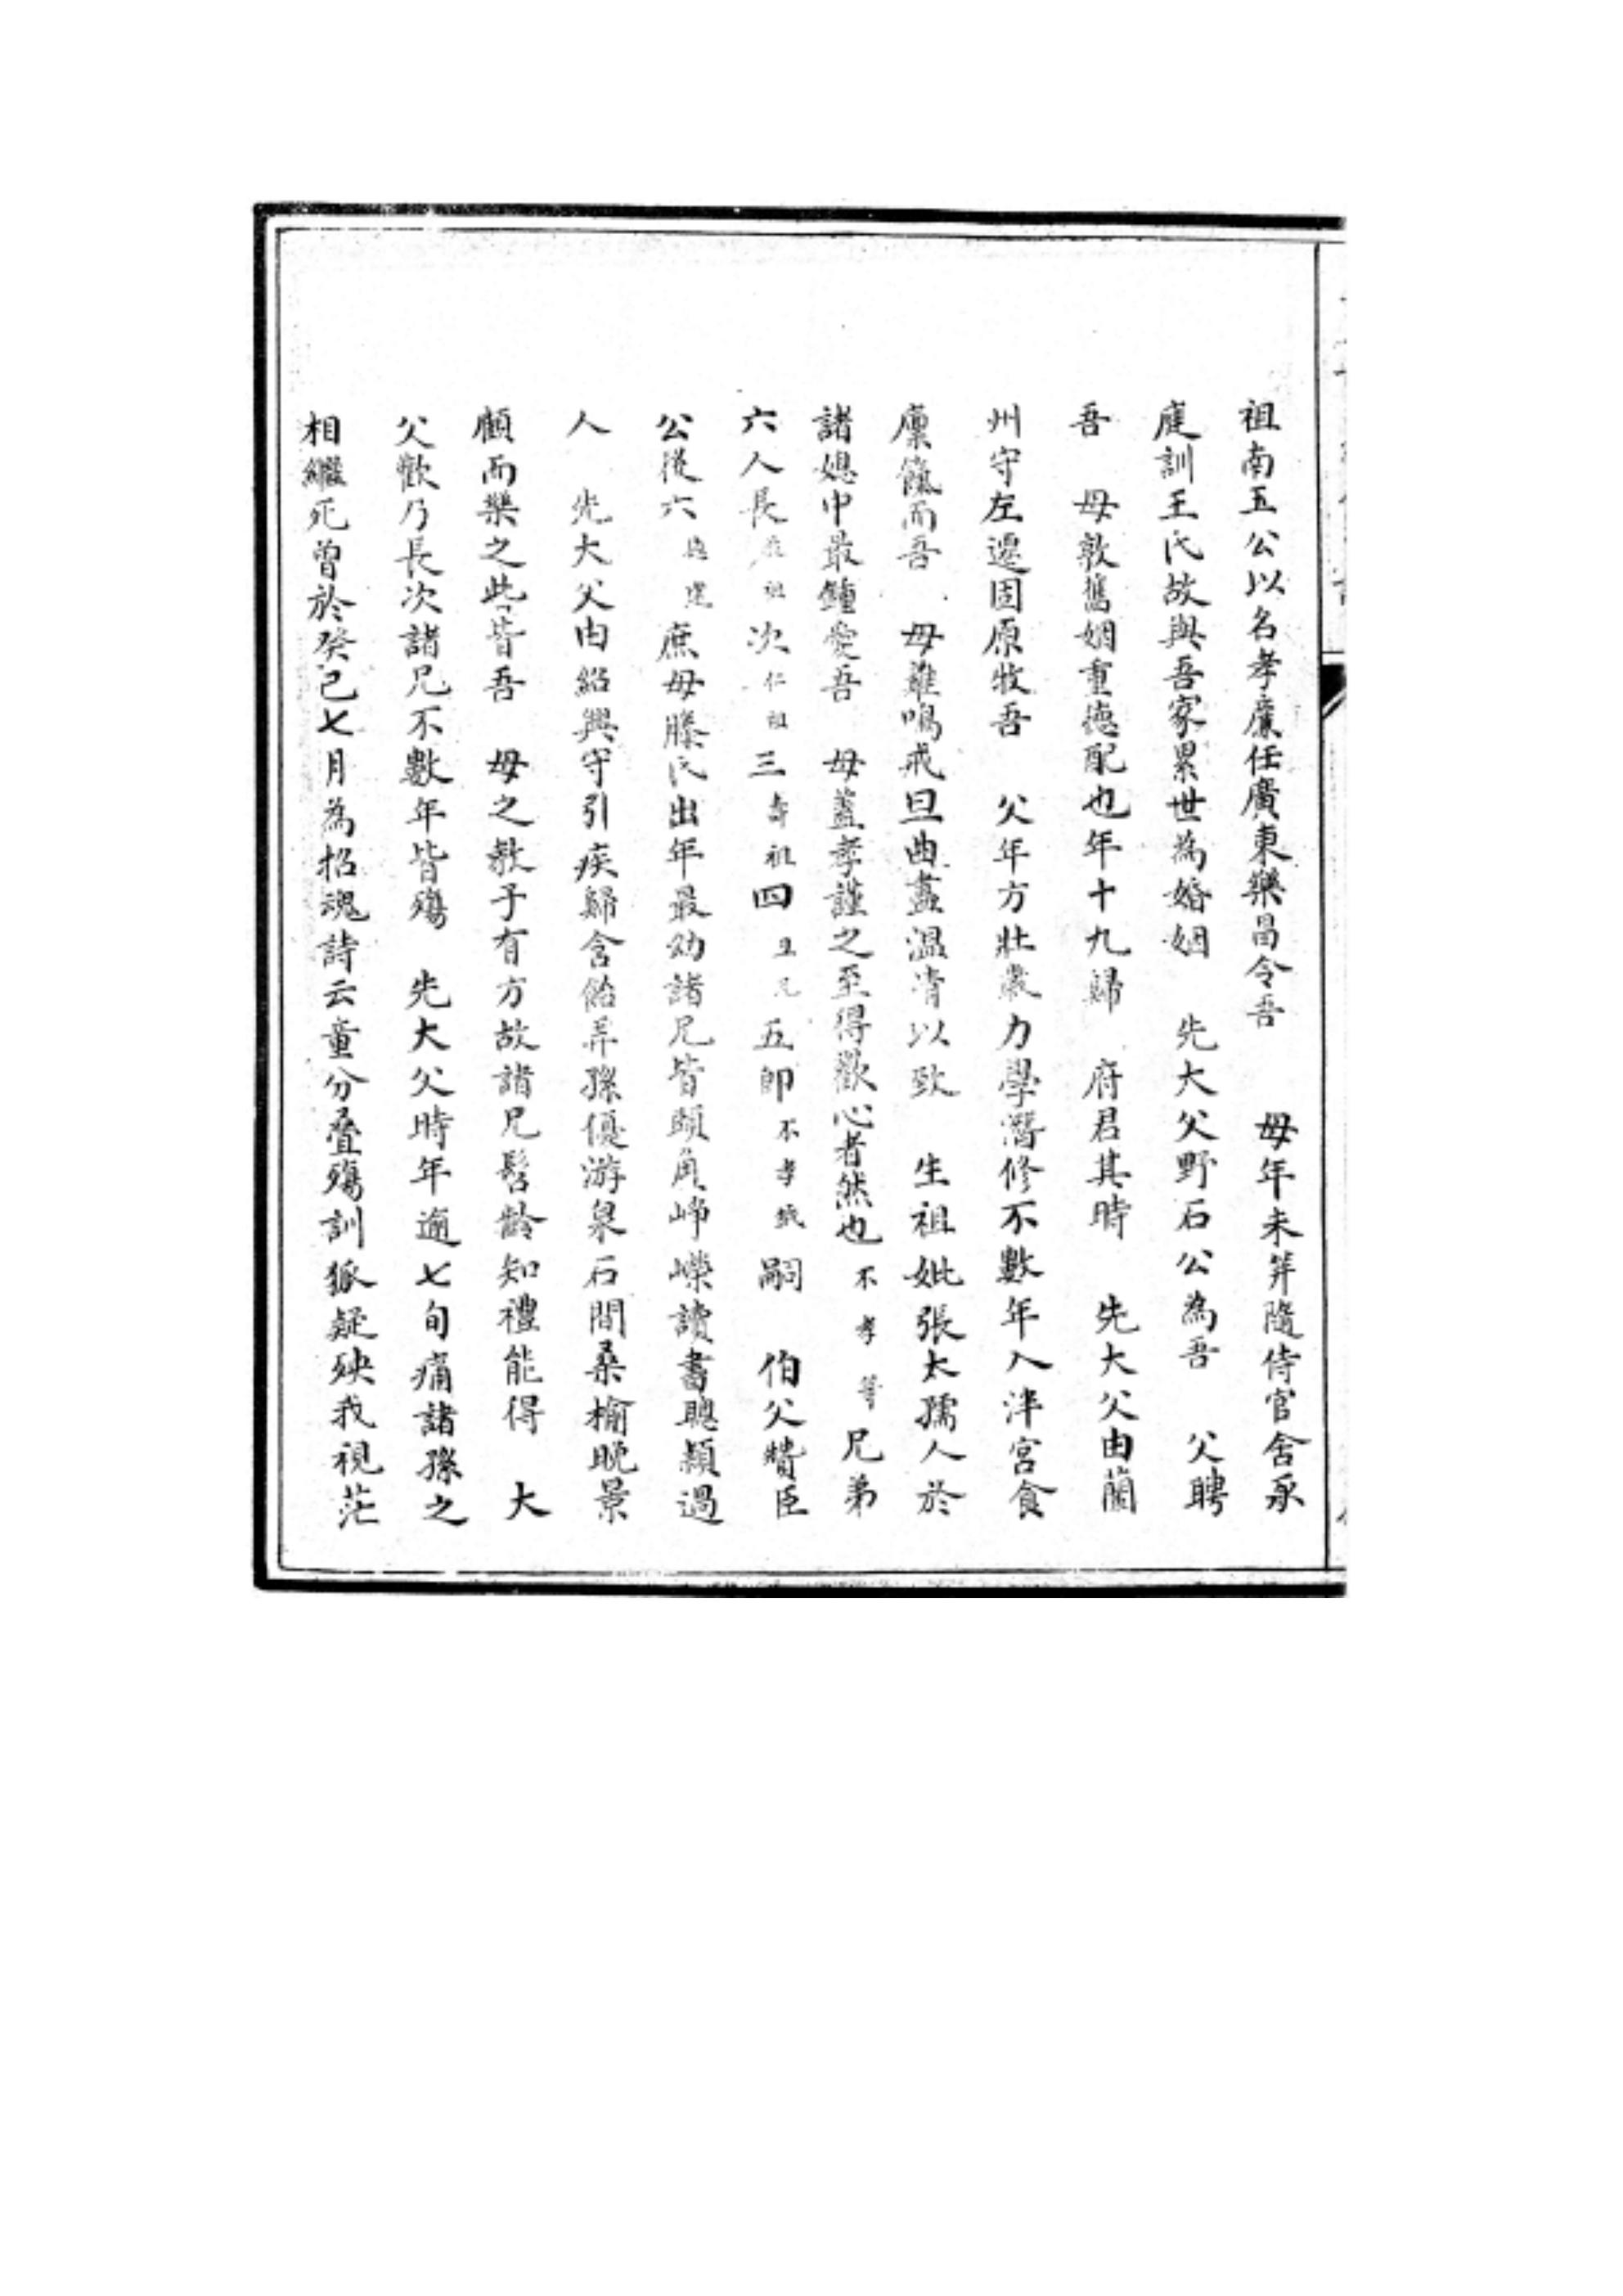 祖南五公以名孝廉任廣東樂昌令吾　母年未笄隨侍官舍承
庭訓王氏故與吾家累世為婚姻　先大父野石公為吾　父聘
吾　母敦舊姻重德配也年十九歸　府君其時　先大父由蘭
州守左遷固原牧吾　父年方壯歲力學潛修不數年入泮宮食
廩餼而吾　母雞鳴戒旦曲盡溫凊以致　生祖妣張太孺人於
諸媳中最鍾愛吾　母蓋孝謹之至得歡心者然也不孝等兄弟
六人長祖次仁祖三壽祖四五即不孝嗣　伯父贊臣
公從六庶母滕氏出年最幼諸兄皆頭角崢嶸讀書聰穎過
人　先大父由紹興守引疾歸含飴弄孫優游泉石間桑榆晚景
顧而樂之此皆吾　母之教子有方故諸兄髫齡知禮能得　大
父歡乃長次諸兄不數年皆殤　先大父時年逾七旬痛諸孫之
相繼死曾於癸巳七月為招魂詩云童分叠殤訓狐疑殃我視茫